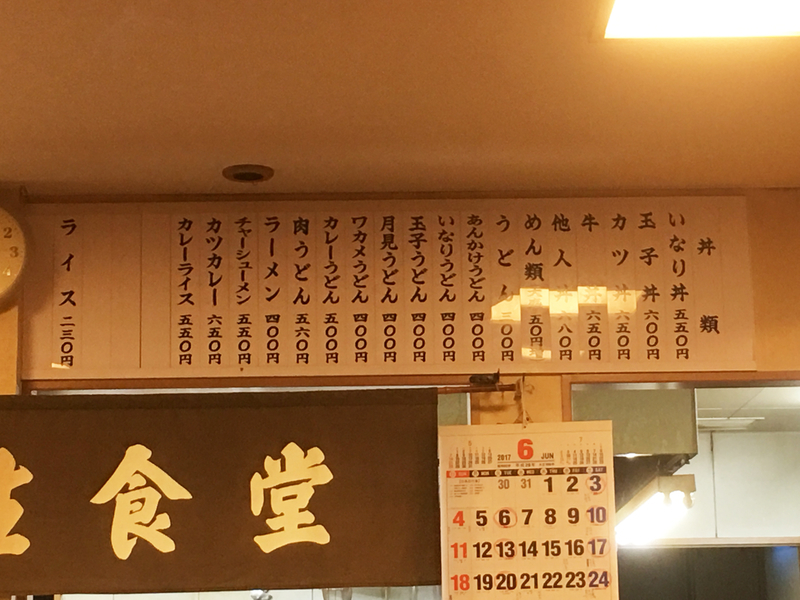 丼類
いなり丼 五五〇円
玉子丼 六〇〇円
カツ丼 六五〇円
牛丼 六五〇円
他人丼 六八〇円
めん類 五〇円
うどん 三〇〇円
あんかけうどん 四〇〇円
いなりうどん 四〇〇円
玉子うどん 四〇〇円
月見うどん 四〇〇円
ワカメうどん 四〇〇円
カレーうどん 五〇〇円
肉うどん 五六〇円
ラーメン 四〇〇円
チャーシューメン 五五〇円
カツカレー 六五〇円
カレーライス 五五〇円
ライス 二三〇円
食堂
2017 6 JUN
SUN MON TUE WED THU FRI SAT
30 31 1 2 3
4 5 6 7 8 9 10
11 12 13 14 15 16 17
18 19 20 21 22 23 24
2
3